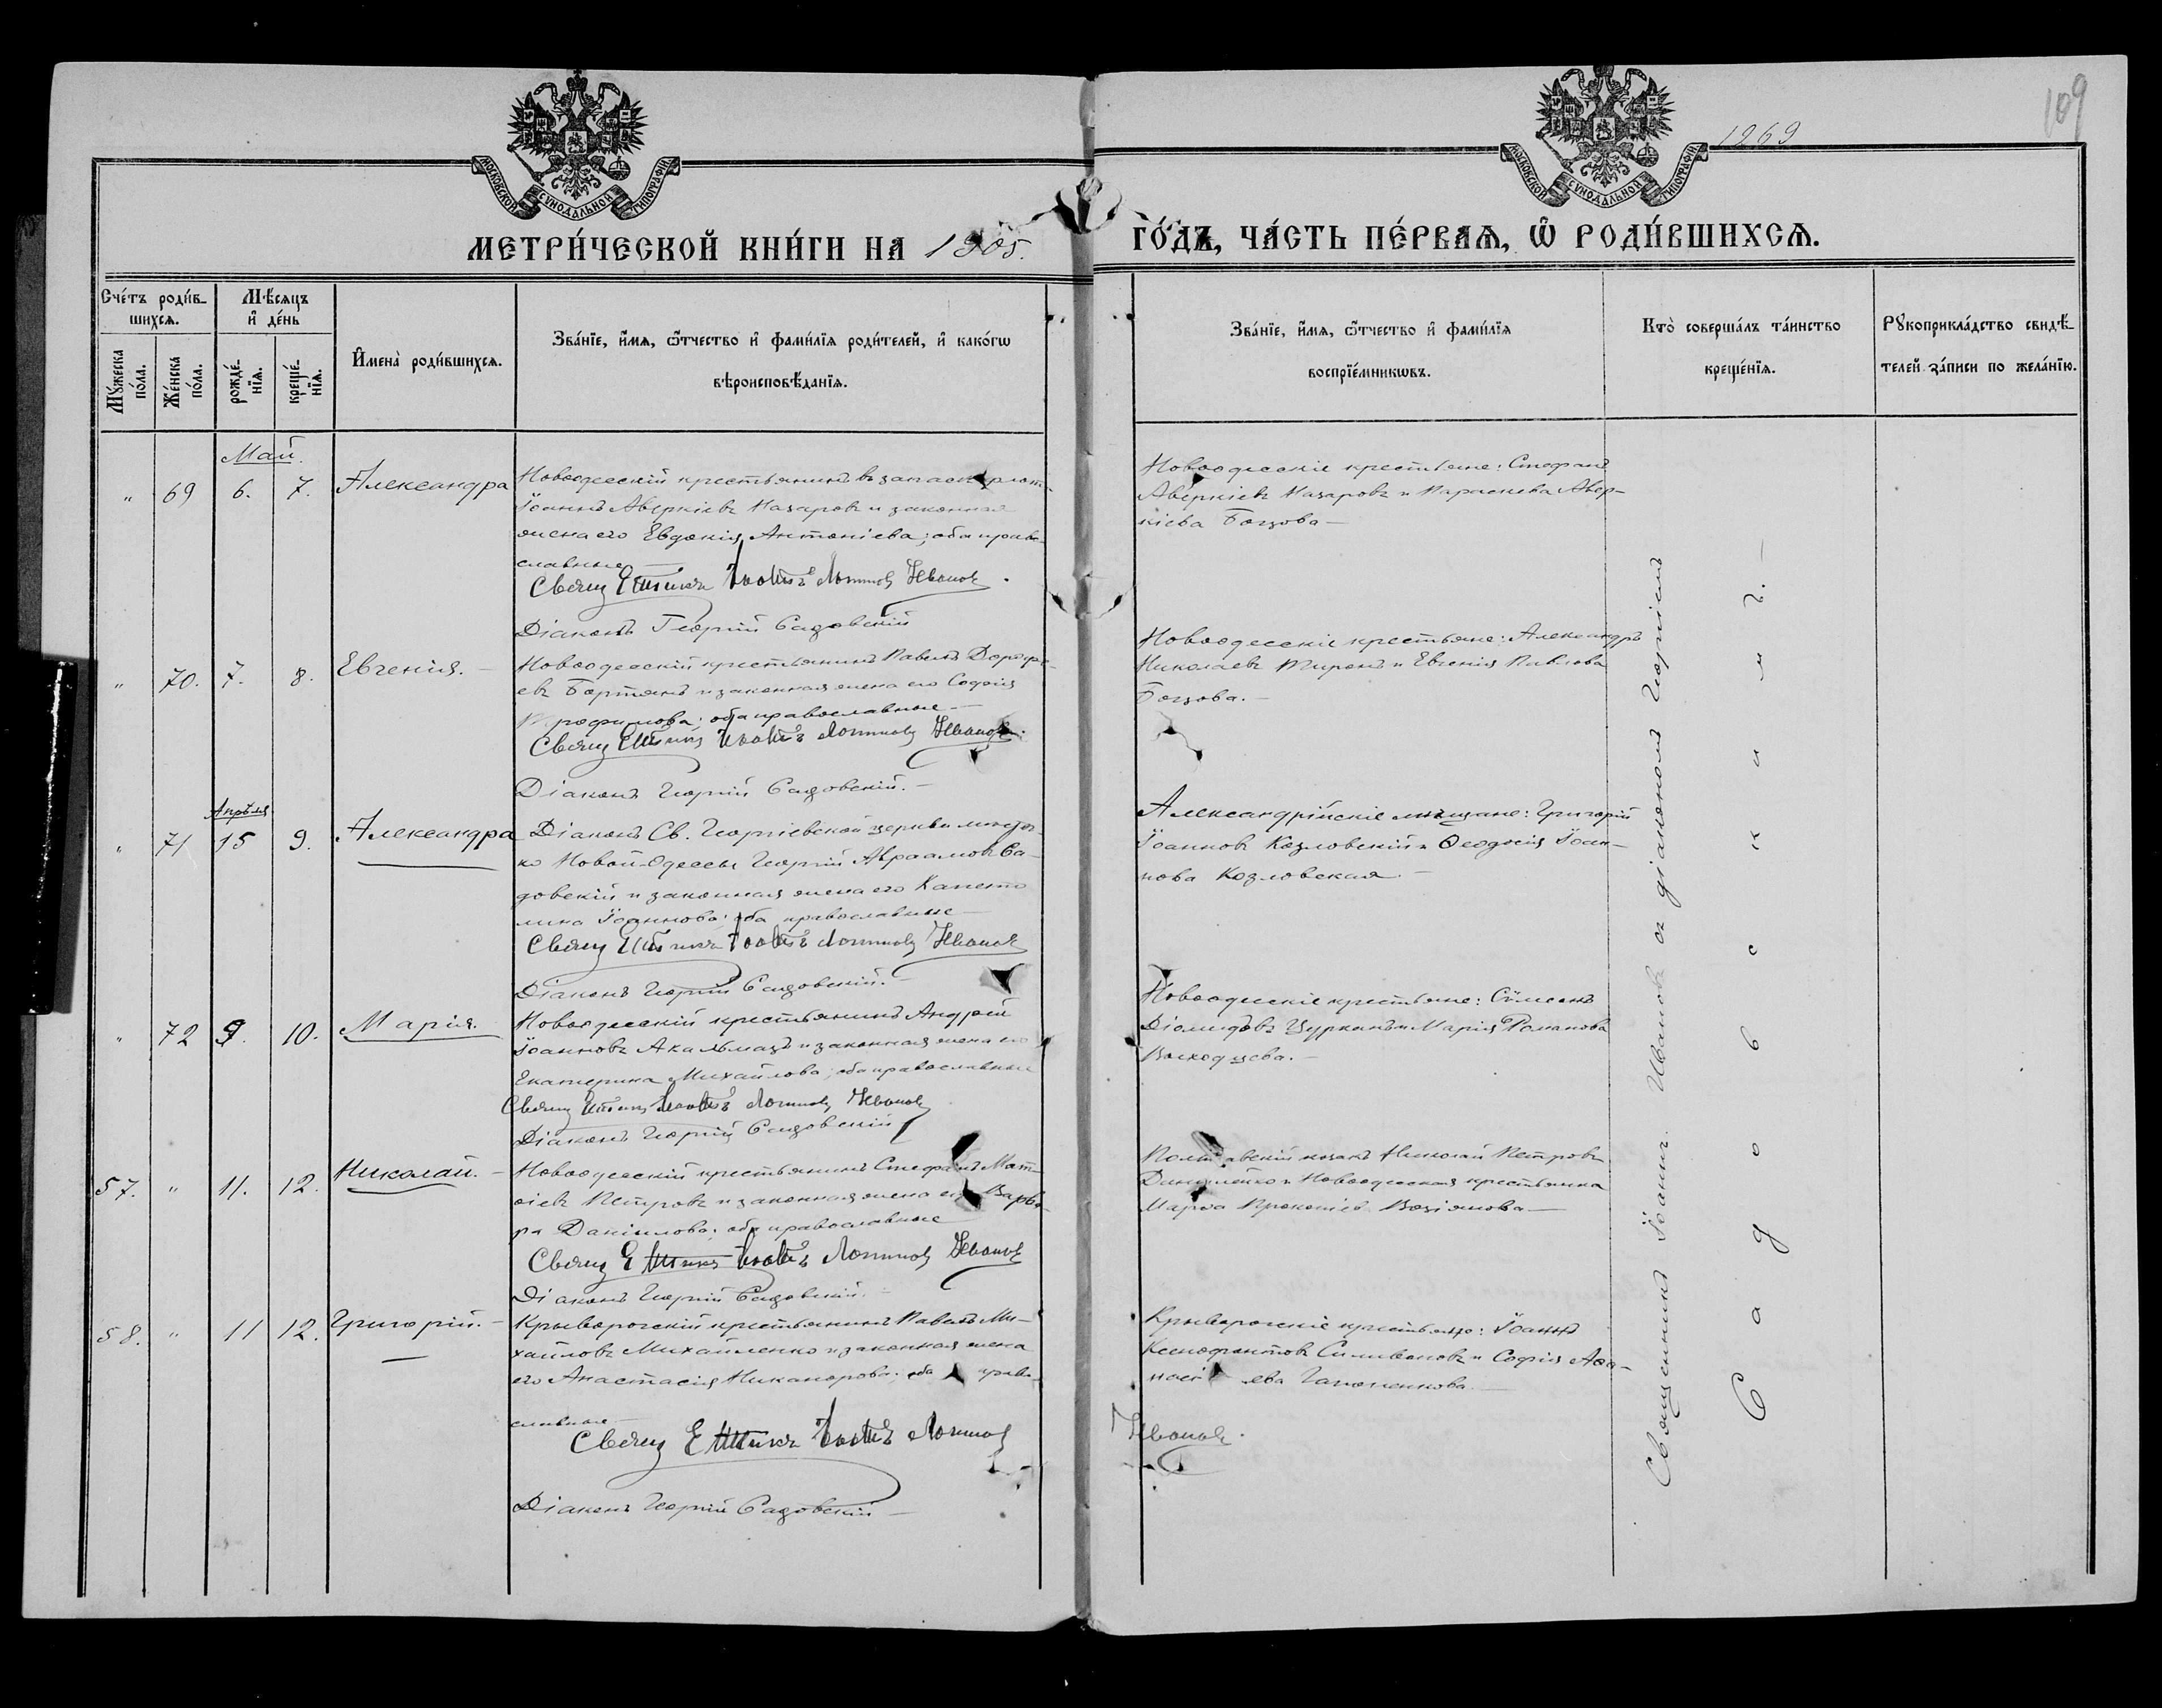 109
1269
МОСКОВСКОЙ СѴНОДАЛЬНОЙ ТИПОГРАФІИ
МОСКОВСКОЙ СѴНОДАЛЬНОЙ ТИПОГРАФІИ
МЕТРИ́ЧЕСКОЙ КНИ́ГИ НА 1905.
ГО́ДЪ, ЧА́СТЬ ПЕ́РВАЯ, Ѽ РОДИ́ВШИХСѦ.
Сче́тъ роди́вшихся.
Мѣ́сяцъ и де́нь
Мꙋ́жеска по́ла.
Же́нска по́ла.
рожде́нїя.
креще́нїя.
Имена̀ роди́вшихся.
Зва́нїе, и́мя, ѻ҆́тчество и фами́лїя роди́телей, и како́гѡ
вѣроисповѣ́данїя.
Зва́нїе, и́мя, ѻ҆́тчество и фами́лїя
воспрїе́мникѡвъ.
Кто̀ соверша́лъ та́инство
креще́нїя.
Рꙋкоприкла́дство свидѣ́-
телей за́писи по жела́нїю.
Май.
" 69 6. 7. Александра
Новоодесскій крестьянинъ въ запасн. флота
Іоаннъ Аверкіевъ Назаровъ и законная
жена его Евдокія Антоніева; оба право-
славные
Свящ Іоаннъ Логинов Иванов.
Діаконъ Георгій Садовскій
Новоодесскіе крестьяне: Стефанъ
Аверкіевъ Назаровъ и Параскева Авер-
кіева Богзова —
" 70. 7. 8. Евгенія. —
Новоодесскій крестьянинъ Павелъ Дороfе-
евъ Бортянъ и законная жена его Софія
Трофимова; оба православные. —
Свящ Іоаннъ Логинов Иванов.
Діаконъ Георгій Садовскій. —
Новоодесскіе крестьяне: Александръ
Николаевъ Тиронъ и Евгенія Павлова
Богзова. —
Апрѣля
" 71 15 9. Александра
Діаконъ Св. Георгіевской церкви местеч-
ка Новой-Одессы Георгій Авраамовъ Са-
довскій и законная жена его Капето-
лина Іоаннова; оба православные —
Свящ Іоаннъ Логинов Иванов
Діаконъ Георгій Садовскій. —
Александрійскіе мѣщане: Григорій
Іоанновъ Козловскій и Ѳеодосія Іоан-
нова Козловская. —
" 72 9. 10. Марія.
Новоодесскій крестьянинъ Андрей
Іоанновъ Акальмазъ и законная жена его
Екатерина Михайлова; оба православные
Свящ Іоаннъ Логинов Иванов
Діаконъ Георгій Садовскій
Новоодесскіе крестьяне: Сѵмеонъ
Діомидовъ Цуркинъ и Марія Романова
Выходцева. —
57. " 11. 12. Николай. —
Новоодесскій крестьянинъ Стефанъ Мат-
ѳіевъ Петровъ и законная жена его Варва-
ра Даніилова; оба православные
Свящ Іоаннъ Логинов Иванов
Діаконъ Георгій Садовскій. —
Полтавскій козакъ Николай Петровъ
Данилейко и Новоодесская крестьянка
Марѳа Прокопіев. Возіянова —
58. " 11 12. Григорій. —
Криворогскій крестьянинъ Павелъ Ми-
хайловъ Михайленко и законная жена
его Анастасія Никанорова; оба право-
славные —
Свящ Іоаннъ Логинов
Иванов.
Діаконъ Георгій Садовскій —
Криворогскіе крестьяне: Іоаннъ
Ксенофонтовъ Силивановъ и Софія Аѳа-
насіева Гапоненкова. —
Священникъ Іоаннъ Ивановъ съ діакономъ Георгіемъ
Садовскимъ. —